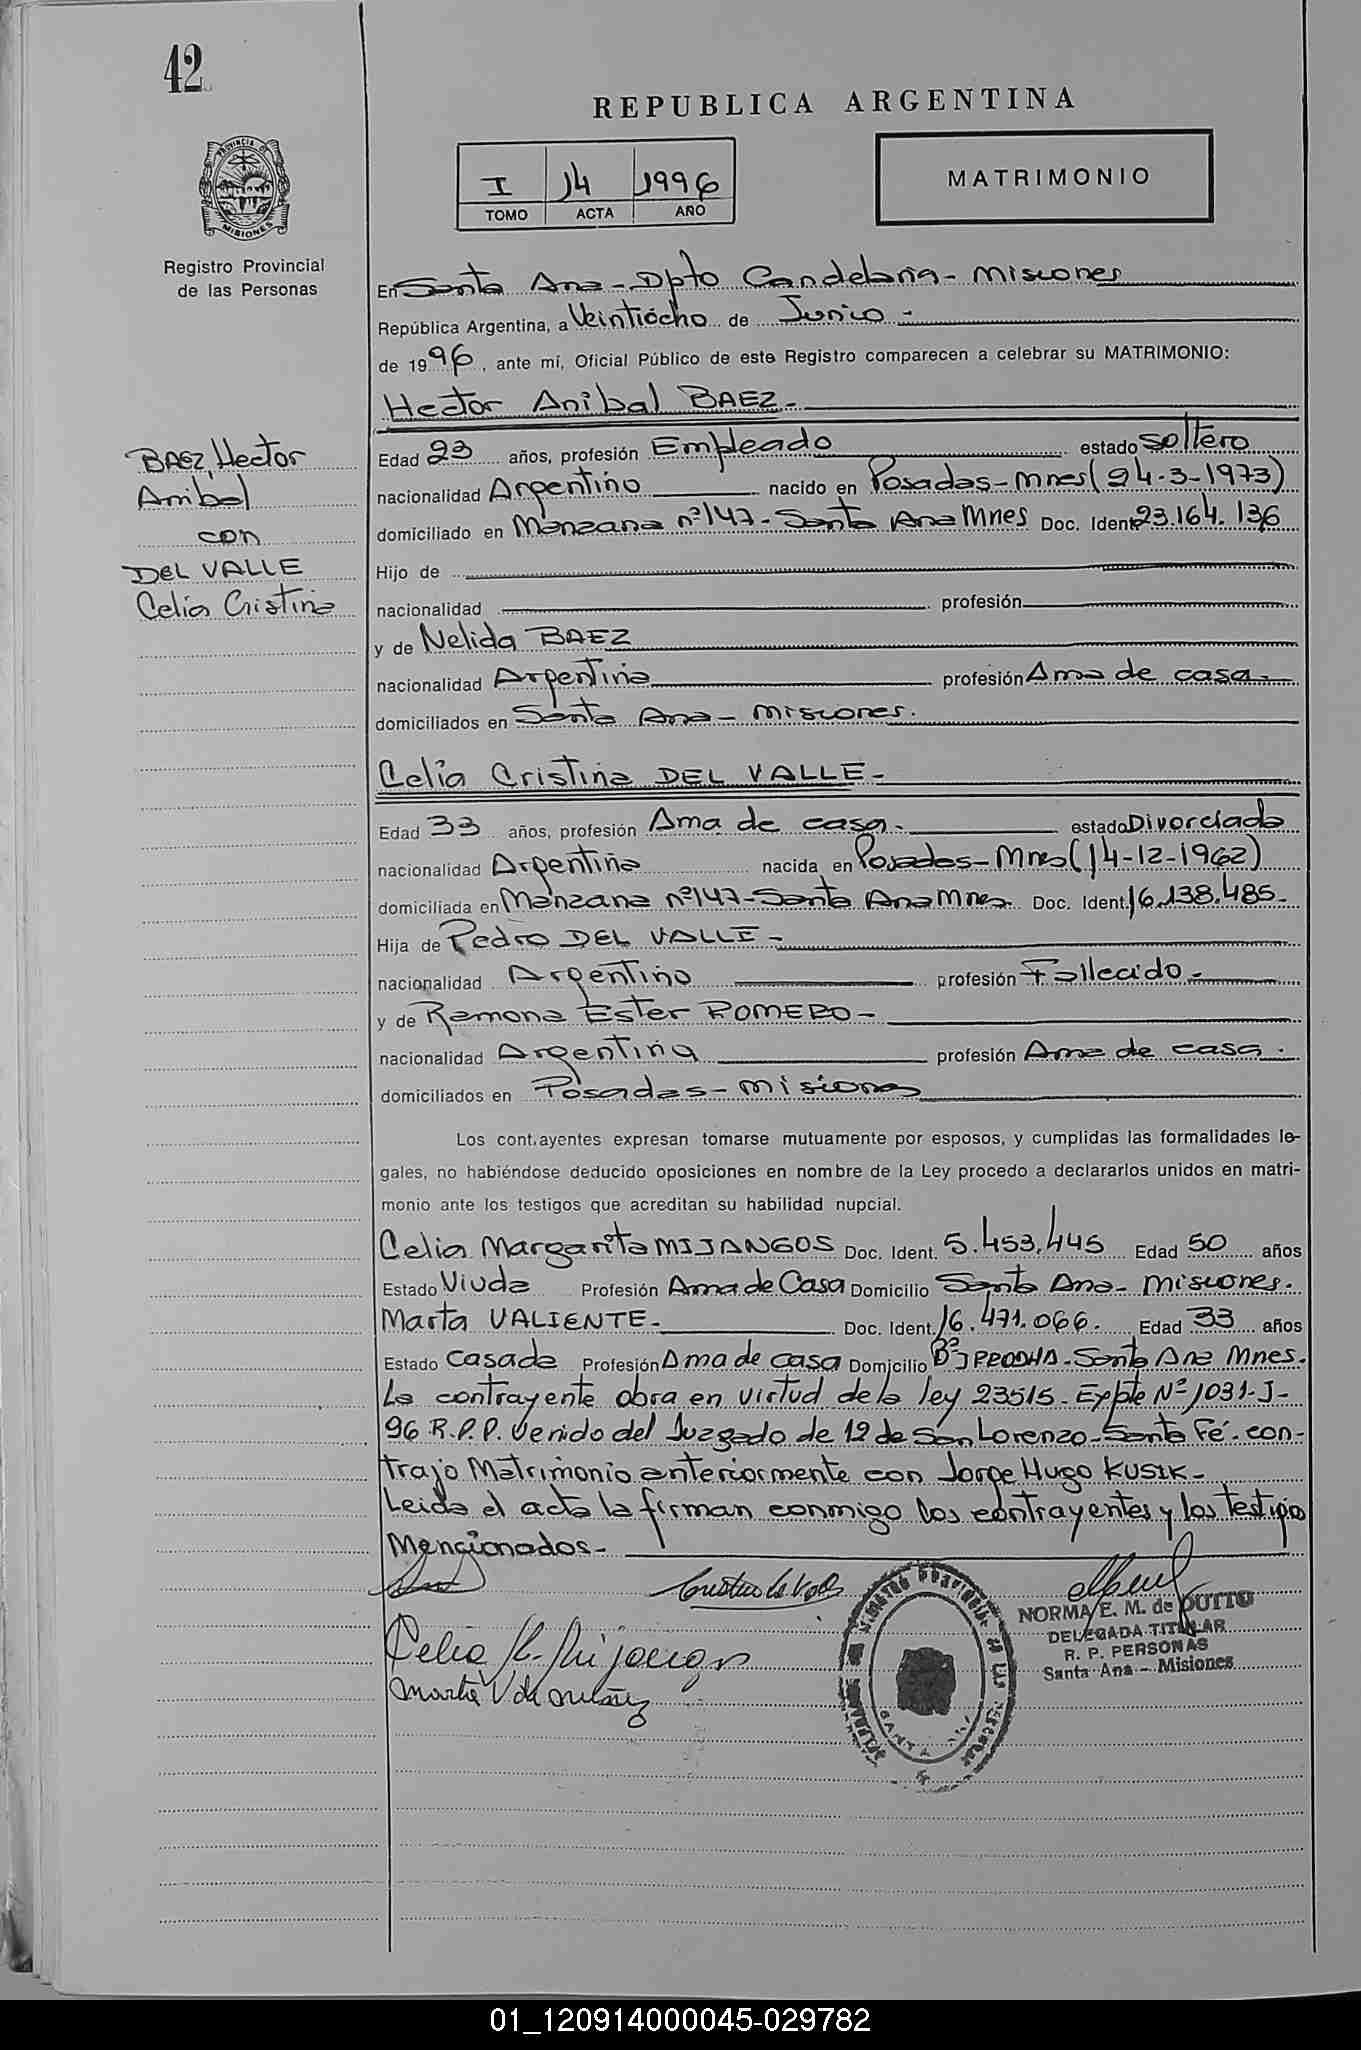 42
REPUBLICA ARGENTINA
I 14 1996
TOMO ACTA AÑO
MATRIMONIO
PROVINCIA DE
MISIONES
Registro Provincial
de las Personas
En Santa Ana - Dpto Candelaria - Misiones
República Argentina, a Veintiócho de Junio -
de 1996, ante mí, Oficial Público de este Registro comparecen a celebrar su MATRIMONIO:
Hector Anibal BAEZ -
BAEZ, Hector
Anibal
con
DEL VALLE
Celia Cristina
Edad 23 años, profesión Empleado estado soltero
nacionalidad Argentino nacido en Posadas - Mnes (24-3-1973)
domiciliado en Manzana nº 147 - Santa Ana Mnes Doc. Ident. 23.164.136
Hijo de
nacionalidad profesión
y de Nelida BAEZ
nacionalidad Argentina profesión Ama de casa -
domiciliados en Santa Ana - Misiones.
Celia Cristina DEL VALLE -
Edad 33 años, profesión Ama de casa - estado Divorciada
nacionalidad Argentina nacida en Posadas - Mnes (14-12-1962)
domiciliada en Manzana nº 147 - Santa Ana Mnes Doc. Ident. 16.138.485 -
Hija de Pedro DEL VALLE -
nacionalidad Argentino profesión Fallecido -
y de Ramona Ester ROMERO -
nacionalidad Argentina profesión Ama de casa.
domiciliados en Posadas - Misiones
Los cont.ayentes expresan tomarse mutuamente por esposos, y cumplidas las formalidades le-
gales, no habiéndose deducido oposiciones en nombre de la Ley procedo a declararlos unidos en matri-
monio ante los testigos que acreditan su habilidad nupcial.
Celia Margarita MIJANGOS Doc. Ident. 5.453.445 Edad 50 años
Estado Viuda Profesión Ama de Casa Domicilio Santa Ana - Misiones.
Marta VALIENTE - Doc. Ident. 16.471.066. Edad 33 años
Estado Casada Profesión Ama de casa Domicilio Bº IPRODHA - Santa Ana Mnes.
La contrayente obra en virtud de la ley 23515 - Expte Nº 1031-J-
96 R.P.P. Venido del Juzgado de 12 de San Lorenzo - Santa Fé - con-
trajo Matrimonio anteriormente con Jorge Hugo KUSIK -
Leida el acta la firman conmigo los contrayentes y los testigos
Mencionados -
Celia M. Mijangos
NORMA E. M. de DUTTO
DELEGADA TITULAR
R. P. PERSONAS
Santa Ana - Misiones
SANTA ANA
01_120914000045-029782